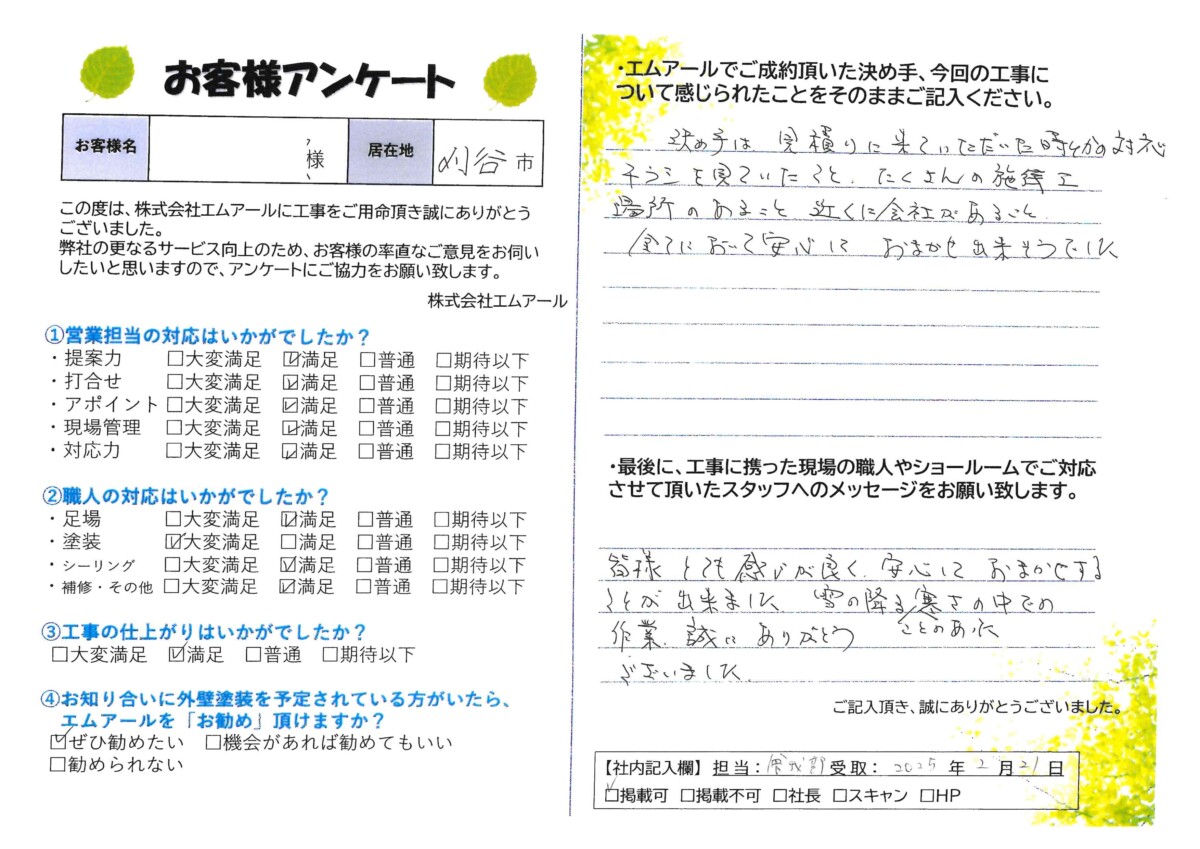 お客様アンケート
お客様名 様 居在地 刈谷市
この度は、株式会社エムアールに工事をご用命頂き誠にありがとう
ございました。
弊社の更なるサービス向上のため、お客様の率直なご意見をお伺い
したいと思いますので、アンケートにご協力をお願い致します。
株式会社エムアール
①営業担当の対応はいかがでしたか?
・提案力 □大変満足 ☑満足 □普通 □期待以下
・打合せ □大変満足 ☑満足 □普通 □期待以下
・アポイント □大変満足 ☑満足 □普通 □期待以下
・現場管理 □大変満足 ☑満足 □普通 □期待以下
・対応力 □大変満足 ☑満足 □普通 □期待以下
②職人の対応はいかがでしたか?
・足場 □大変満足 ☑満足 □普通 □期待以下
・塗装 ☑大変満足 □満足 □普通 □期待以下
・シーリング □大変満足 ☑満足 □普通 □期待以下
・補修・その他 □大変満足 ☑満足 □普通 □期待以下
③工事の仕上がりはいかがでしたか?
□大変満足 ☑満足 □普通 □期待以下
④お知り合いに外壁塗装を予定されている方がいたら、
エムアールを「お勧め」頂けますか?
☑ぜひ勧めたい □機会があれば勧めてもいい
□勧められない
・エムアールでご成約頂いた決め手、今回の工事に
ついて感じられたことをそのままご記入ください。
決め手は 見積りに来ていただいた時の対応
チラシを見ていたこと、たくさんの施工
場所のあること 近くに会社があること
全てにおいて安心して おまかせ出来そうでした
・最後に、工事に携った現場の職人やショールームでご対応
させて頂いたスタッフへのメッセージをお願い致します。
皆様 とても感じが良く、安心して おまかせする
ことが出来ました 雪の降る寒さの中での
ことのあった
作業、誠に ありがとう
ございました
ご記入頂き、誠にありがとうございました。
【社内記入欄】担当: 受取: 2025年2月21日
☑掲載可 □掲載不可 □社長 □スキャン □HP